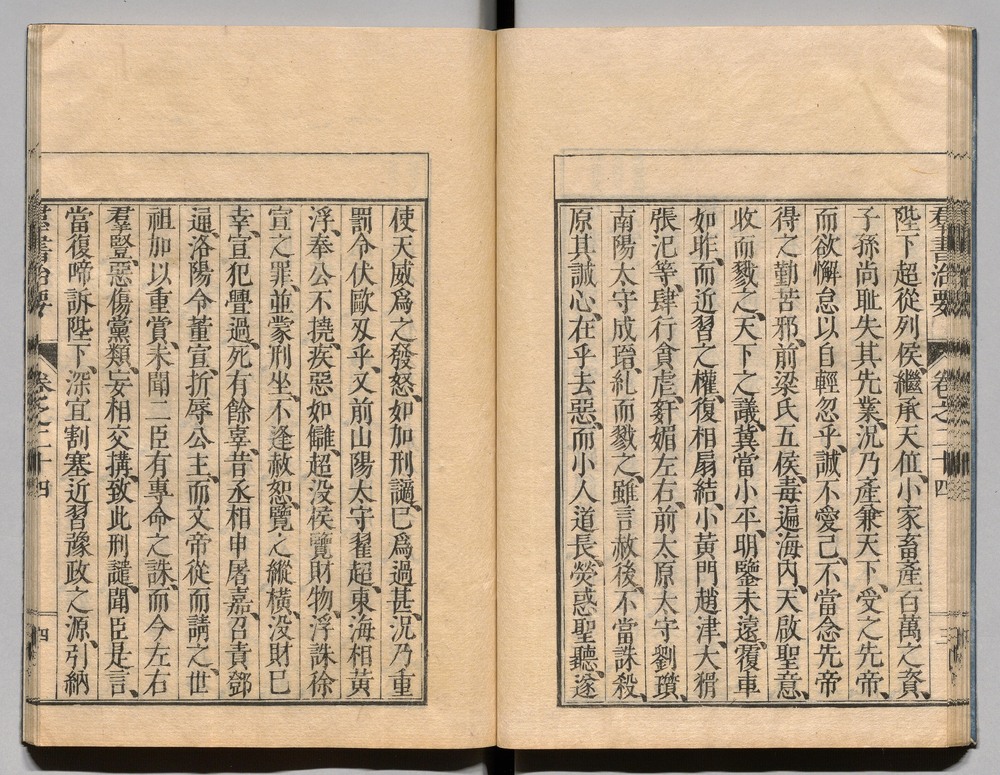 羣書治要 卷之二十四
陛下超從列侯、繼承天位、小家畜產百萬之資、
子孫尚耻失其先業、況乃產兼天下、受之先帝、
而欲懈怠以自輕忽乎、誠不愛己、不當念先帝
得之勤苦邪、前梁氏五侯、毒遍海內、天啟聖意、
收而戮之、天下之議、冀當小平、明鑒未遠、覆車
如昨、而近習之權、復相扇結、小黃門趙津、大猾
張汜等、肆行貪虐、姦媚左右、前太原太守劉瓆、
南陽太守成瑨、糺而戮之、雖言赦後、不當誅殺、
原其誠心、在乎去惡、而小人道長、熒惑聖聽、遂
使天威爲之發怒、如加刑讁、已爲過甚、況乃重
罰令伏歐刄乎、又前山陽太守翟超、東海相黃
浮、奉公不撓、疾惡如讎、超没侯覽財物、浮誅徐
宣之罪、並蒙刑坐、不逢赦恕、覽之縱橫、没財已
幸、宣犯舋過、死有餘辜、昔丞相申屠嘉、召責鄧
通、洛陽令董宣、折辱公主、而文帝從而請之、世
祖加以重賞、未聞二臣有專命之誅、而今左右
羣豎、惡傷黨類、妄相交搆、致此刑譴、聞臣是言、
當復啼訴陛下、深宜割塞近習豫政之源、引納
羣書治要 卷之二十四 四